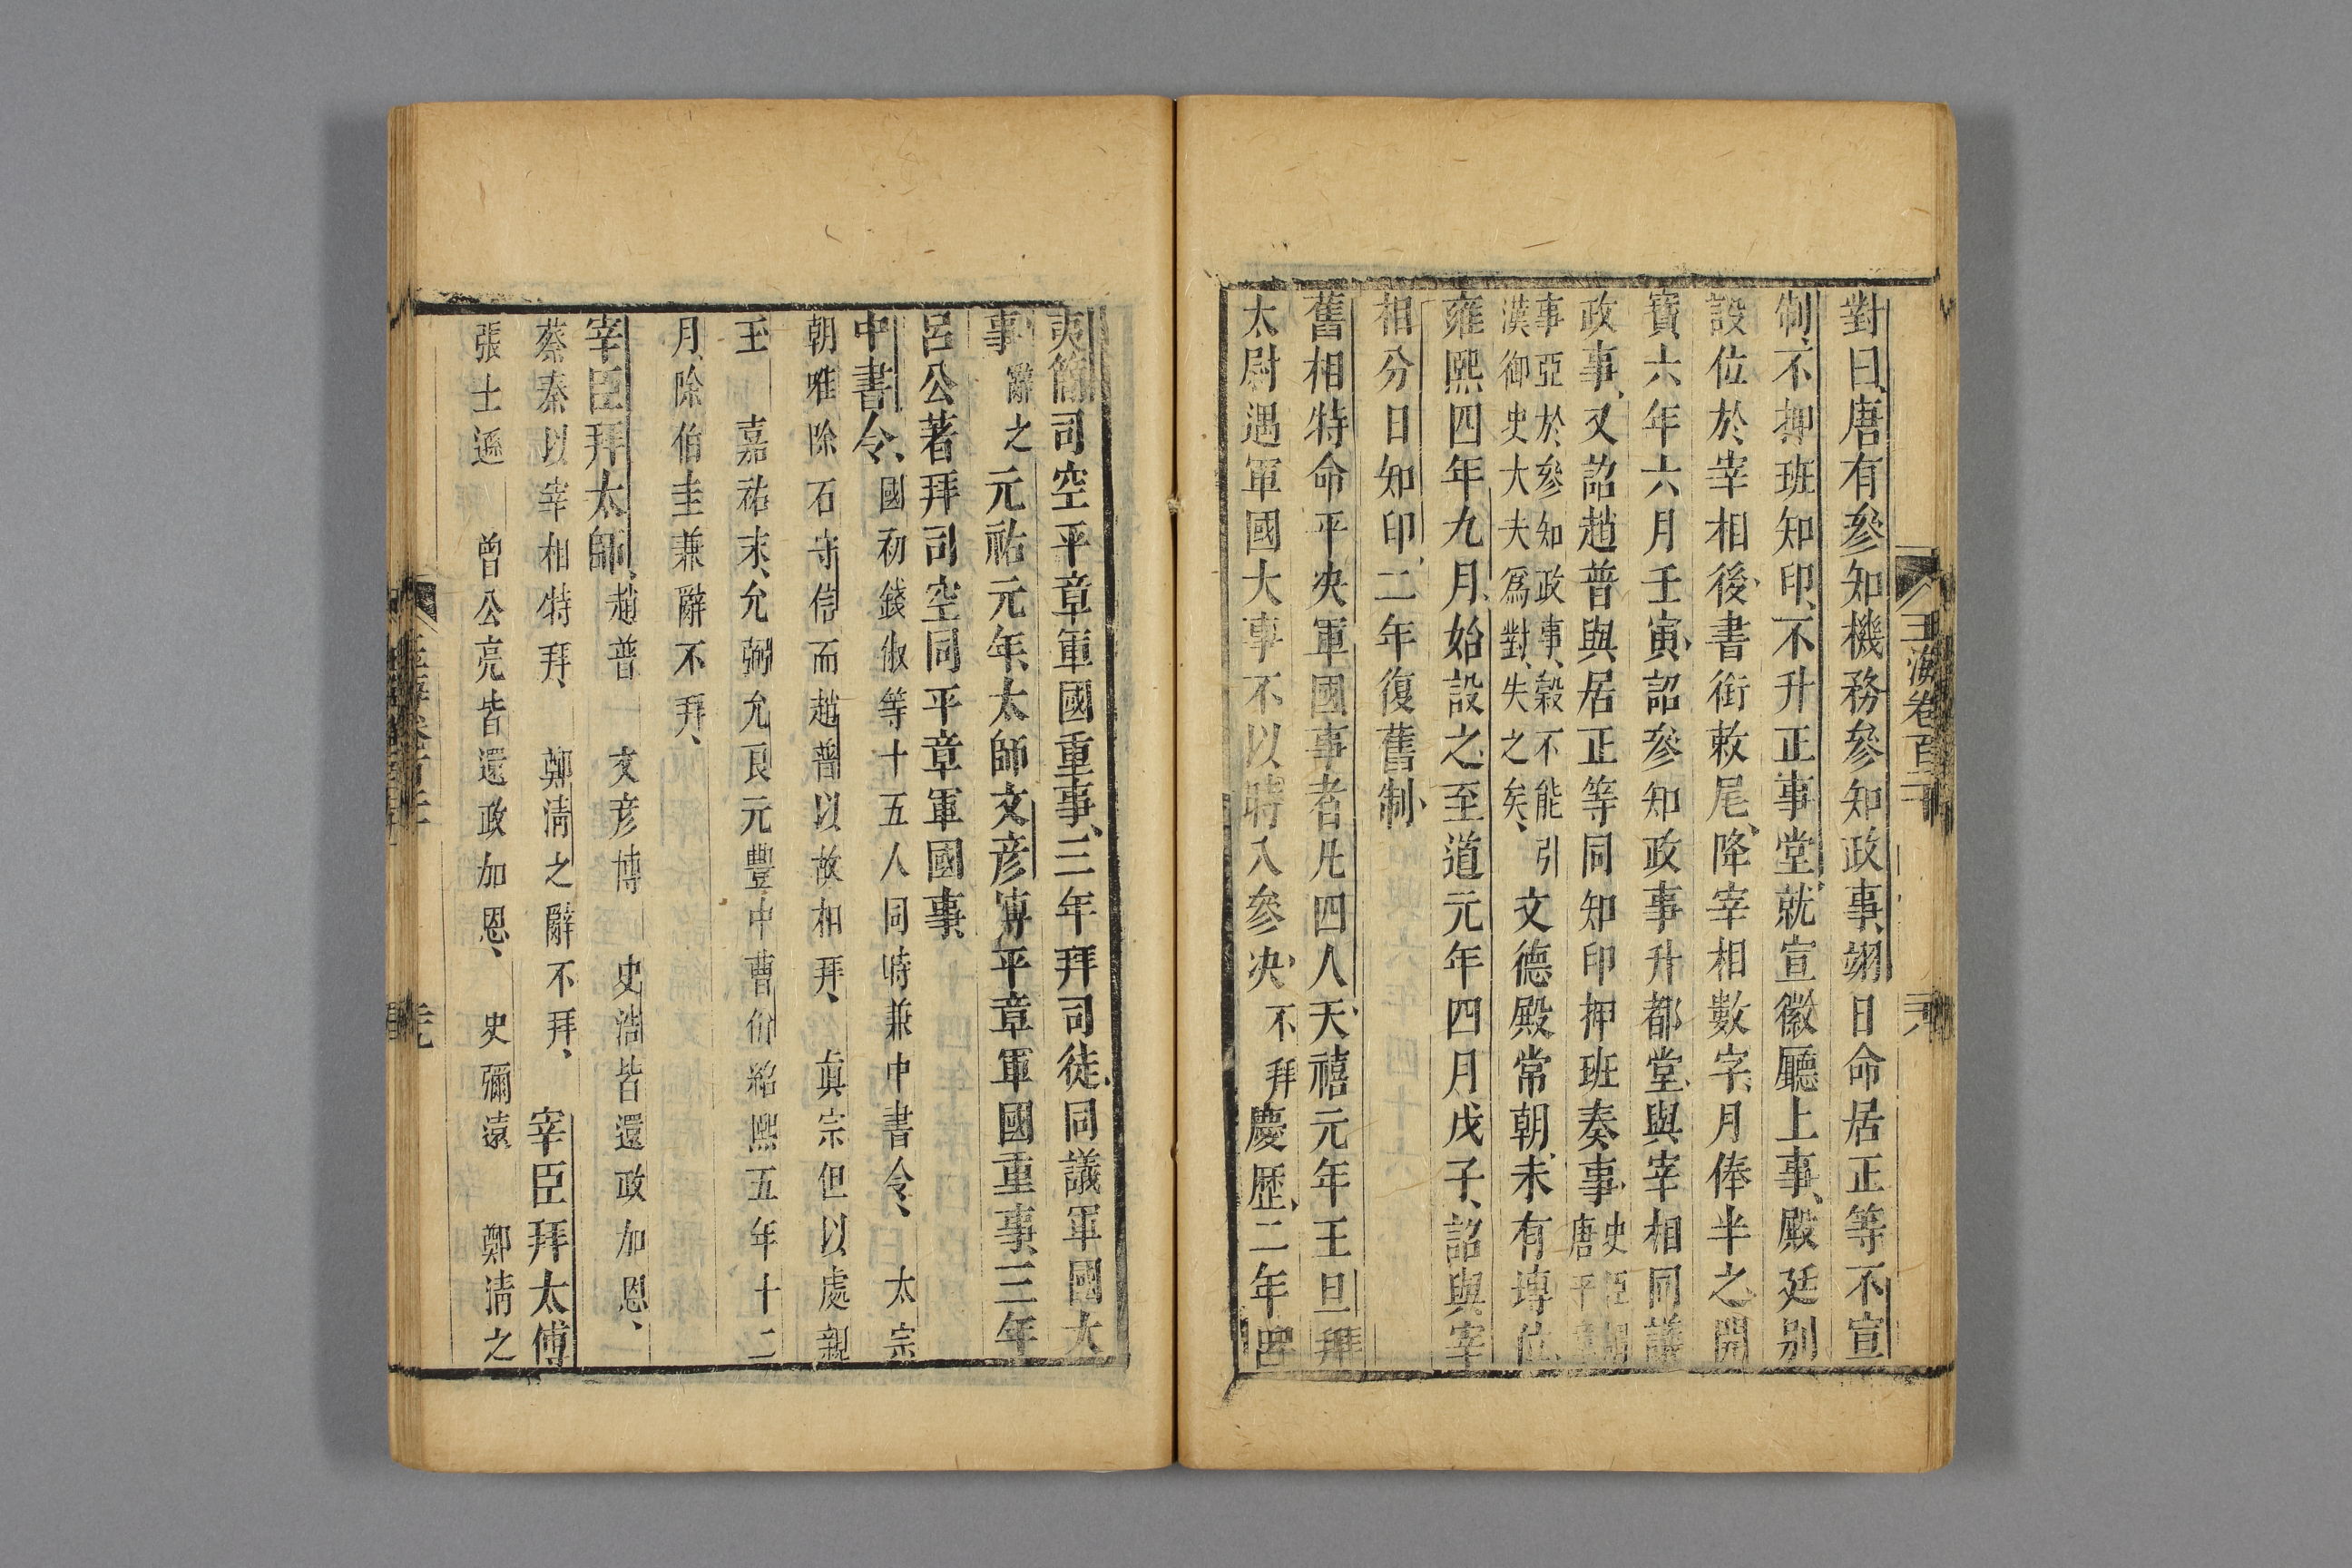 對曰唐有參知機務參知政事翊日命居正等不宣
制不押班知印不升正事堂就宣徽廳上事殿廷别
設位於宰相後書銜敕尾降宰相數字月俸半之開
寶六年六月壬寅詔參知政事升都堂與宰相同議
政事又詔趙普與居正等同知印押班奏事史臣
唐平章
事亞於參知政事榖不能引
漢御史大夫爲對失之矣
文德殿常朝未有塼位
雍熙四年九月始設之至道元年四月戊子詔與宰
相分日知印二年復舊制
舊相特命平央軍國事者凡四人天禧元年王旦拜
太尉遇軍國大事不以時入參决不拜慶歷二年吕
夷簡司空平章軍國重事三年拜司徒同議軍國大
事辭之元祐元年太師文彦博平章軍國重事三年
呂公著拜司空同平章軍國事
中書令國初錢俶等十五人同時兼中書令 太宗
朝唯除石守信而趙普以故相拜 真宗但以處親
王 嘉祐末允弼允良元豐中曹佾紹熙五年十二
月除伯圭兼辭不拜
宰臣拜太師趙普 文彦博 史浩皆還政加恩
蔡秦以宰相特拜 鄭清之辭不拜 宰臣拜太傅
張士遜 曾公亮皆還政加恩 史彌遠 鄭清之
玉海卷百二十